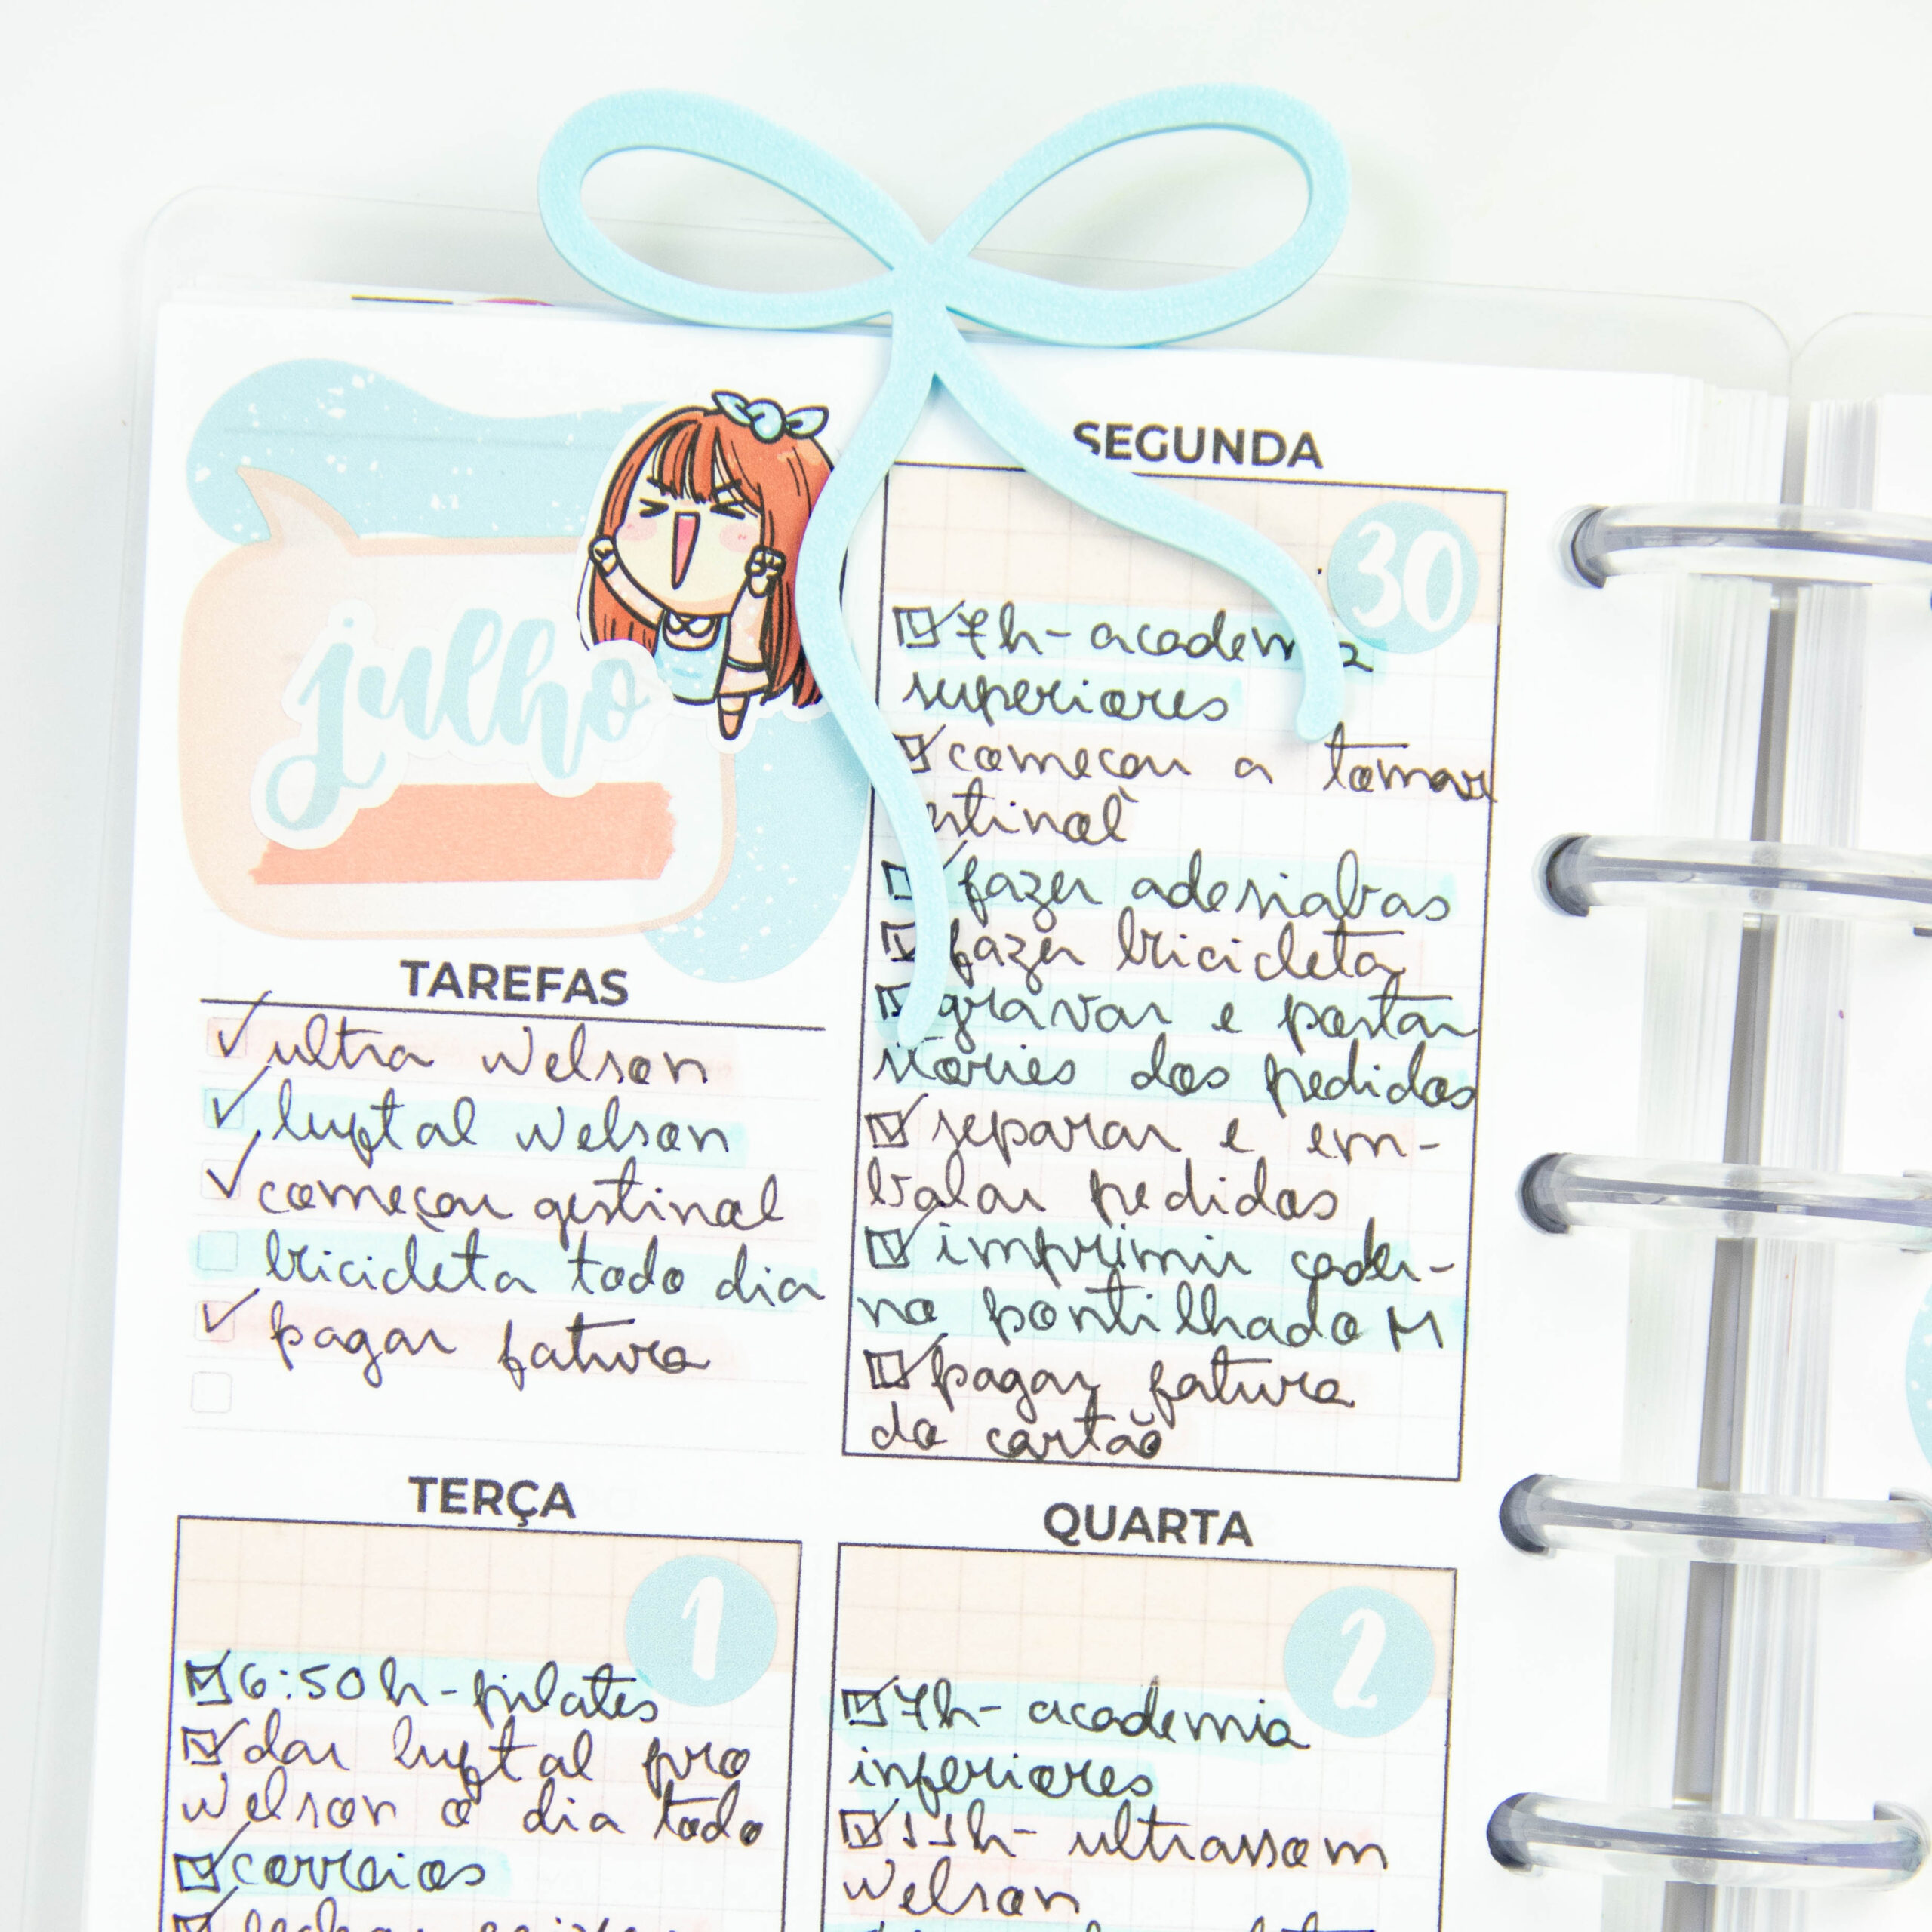 julho
TAREFAS
ultra Welson
luftal Welson
começar gestinal
bicicleta todo dia
pagar fatura
SEGUNDA
30
7h - academia
superiores
começar a tomar
fazer
fazer bicicleta
gravar e postar
stories dos pedidos
separar e em-
balar pedidos
imprimir cader-
no pontilhado M
pagar fatura
do cartão
TERÇA
1
6:50h - pilates
dar luftal pro
Welson o dia todo
correios
QUARTA
2
7h - academia
inferiores
11h - ultrassom
Welson